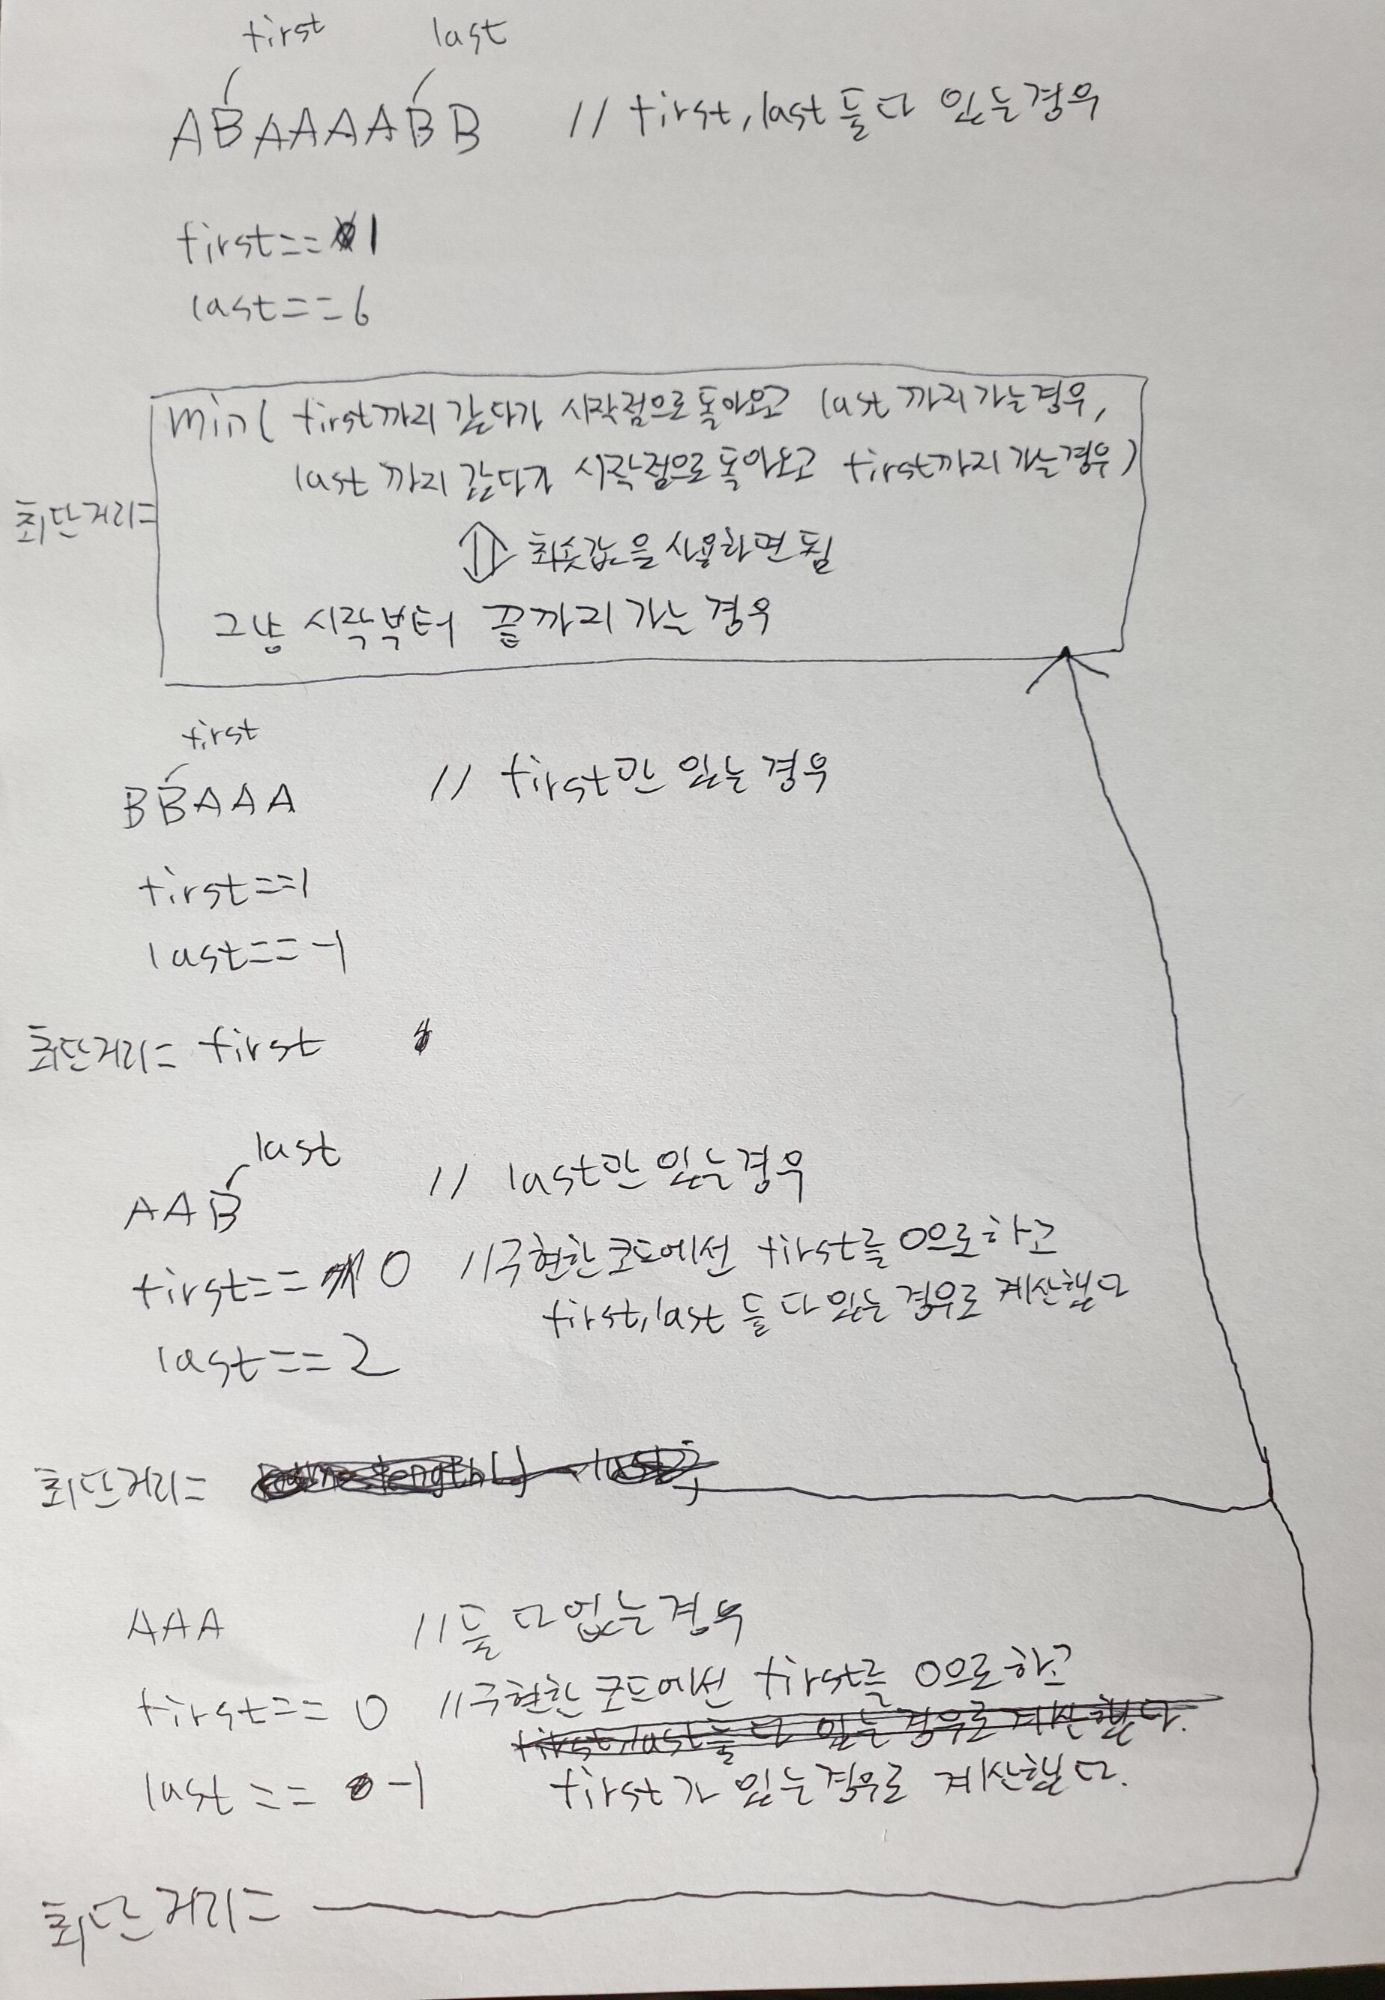 first last
ABAAAABB // first, last 둘 다 있는경우
first==1
last==6
min( first까지 갔다가 시작점으로 돌아오고 last까지 가는경우,
last까지 갔다가 시작점으로 돌아오고 first까지 가는경우)
최단거리=
최솟값을 사용하면 됨
그냥 시작부터 끝까지 가는 경우
first
BBAAA // first만 있는경우
first==1
last==-1
최단거리= first
last
AAB // last만 있는경우
first== 0 //구현한 코드에선 first를 0으로 하고
first, last 둘 다 있는 경우로 계산했다
last==2
최단거리=
AAA //둘 다 없는경우
first== 0 //구현한 코드에선 first를 0으로 하고
first, last 둘 다 있는 경우로 계산했다.
last == -1 first가 있는경우로 계산했다.
최단거리=